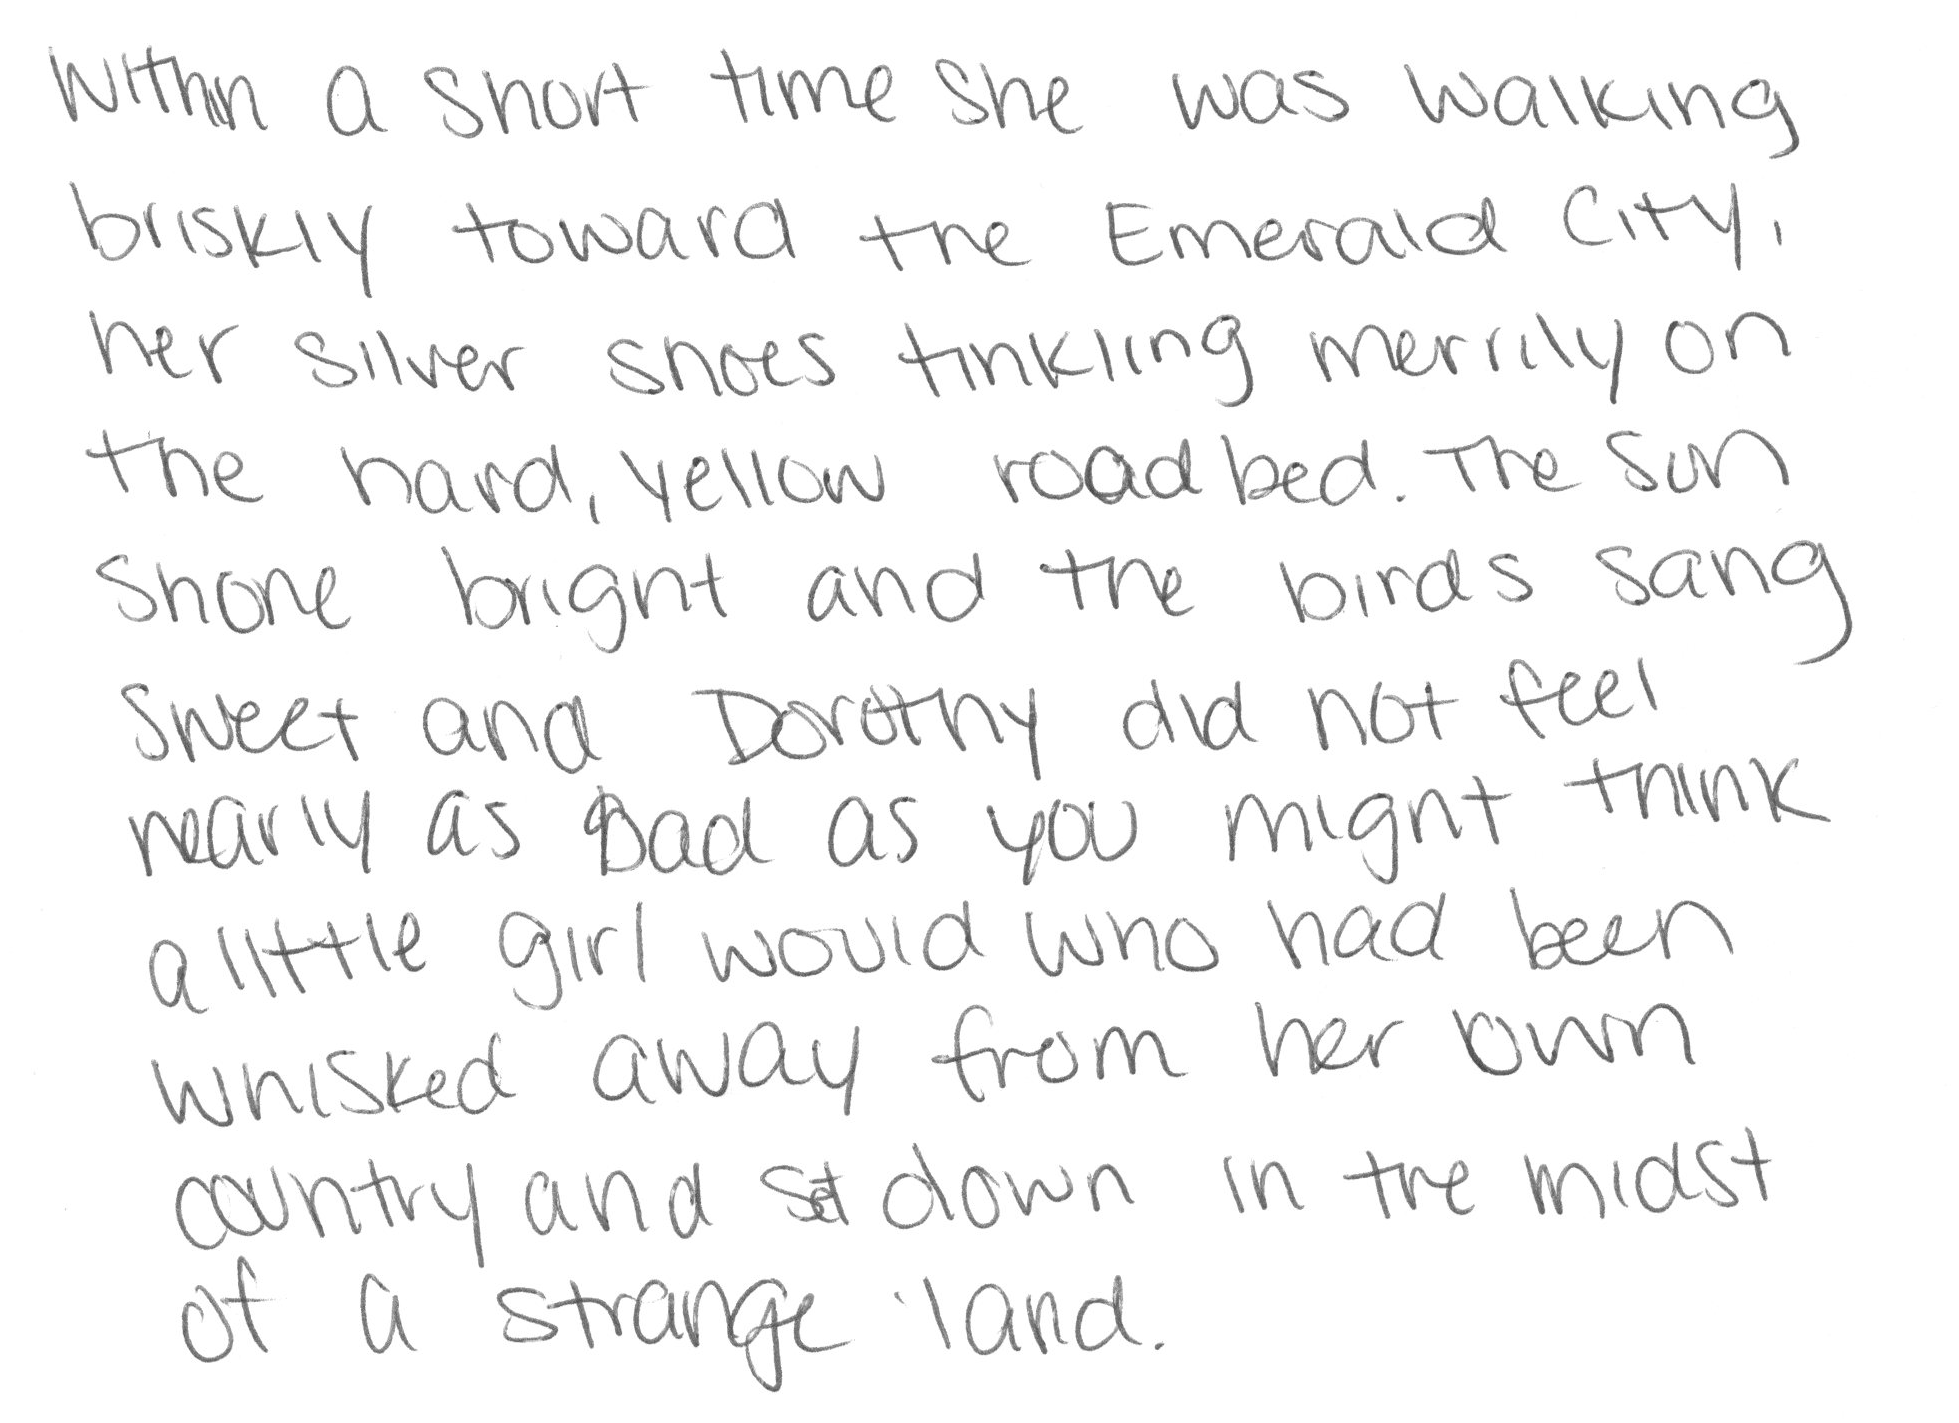 Within a short time she was walking
briskly toward the Emerald City,
her silver shoes tinkling merrily on
the hard, yellow road bed. The sun
shone bright and the birds sang
sweet and Dorothy did not feel
nearly as bad as you might think
a little girl would who had been
whisked away from her own
country and set down in the midst
of a strange land.